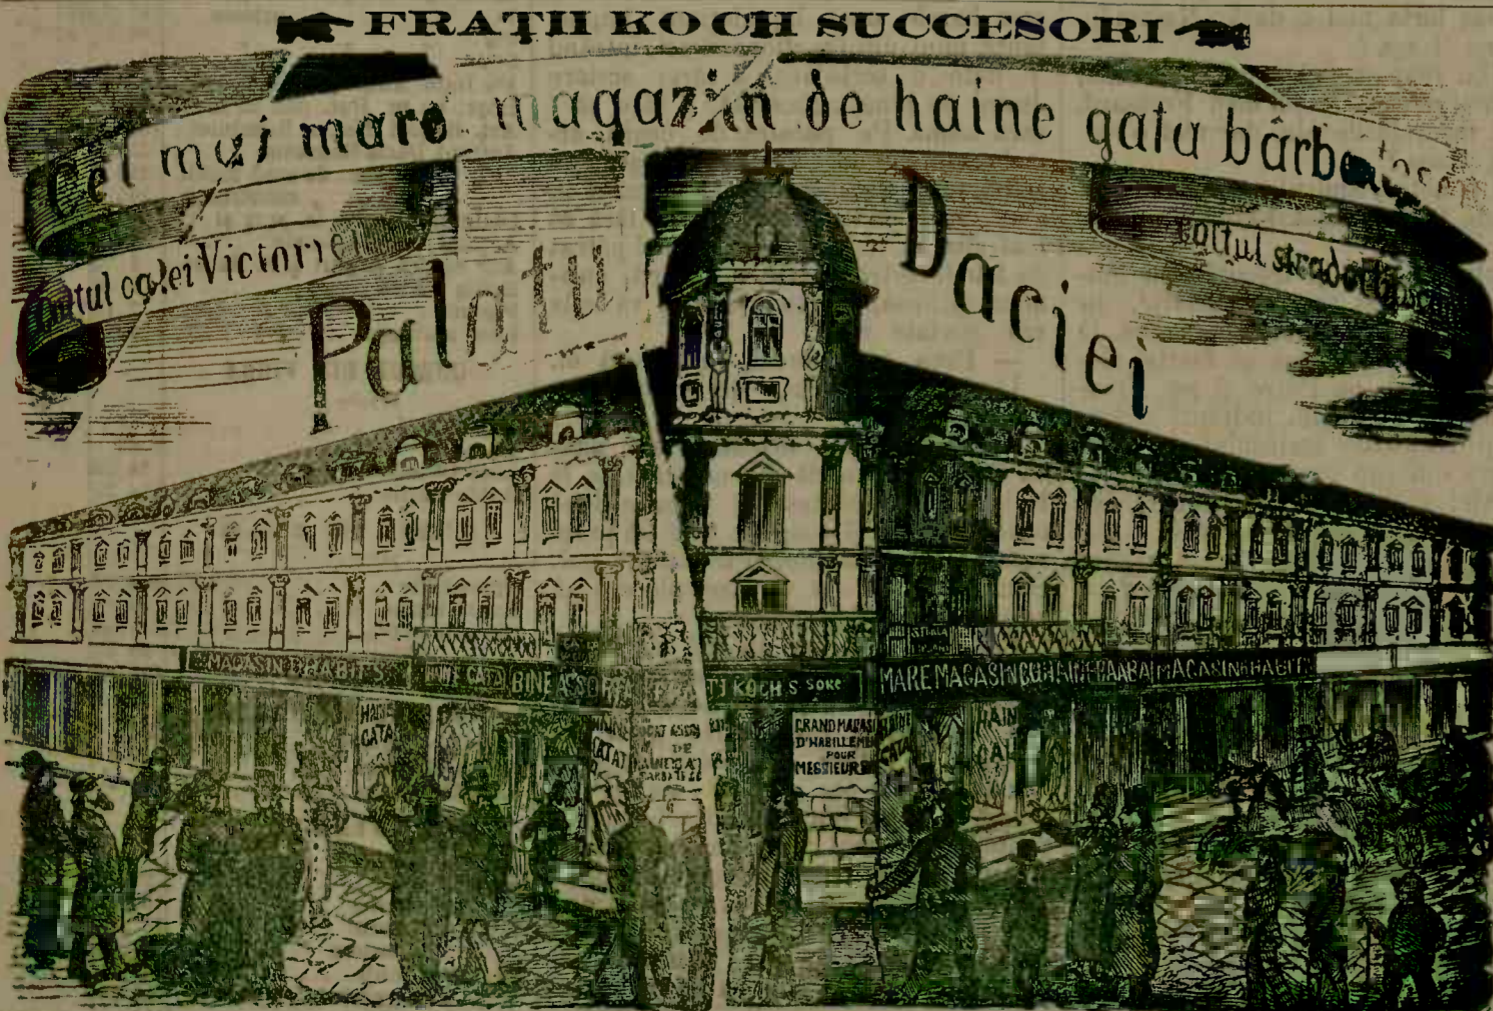 FRAȚII KOCH SUCCESORI
Cel mai mare magazin de haine gata bârbatesci
Colțul calei Victoriei
colțul stradei
Palatu Daciei
MAGASIN D'HABITS
HAINE GATA
BINE ASSORTA
KOCH S SORI
MARE MAGASIN CU HAINE
MAGASIN D'HABIT
HAINE
GATA
DE
GRAND MAGASIN
D'HABILLEMENT
POUR
MESSIEURS
HAINE
GATA